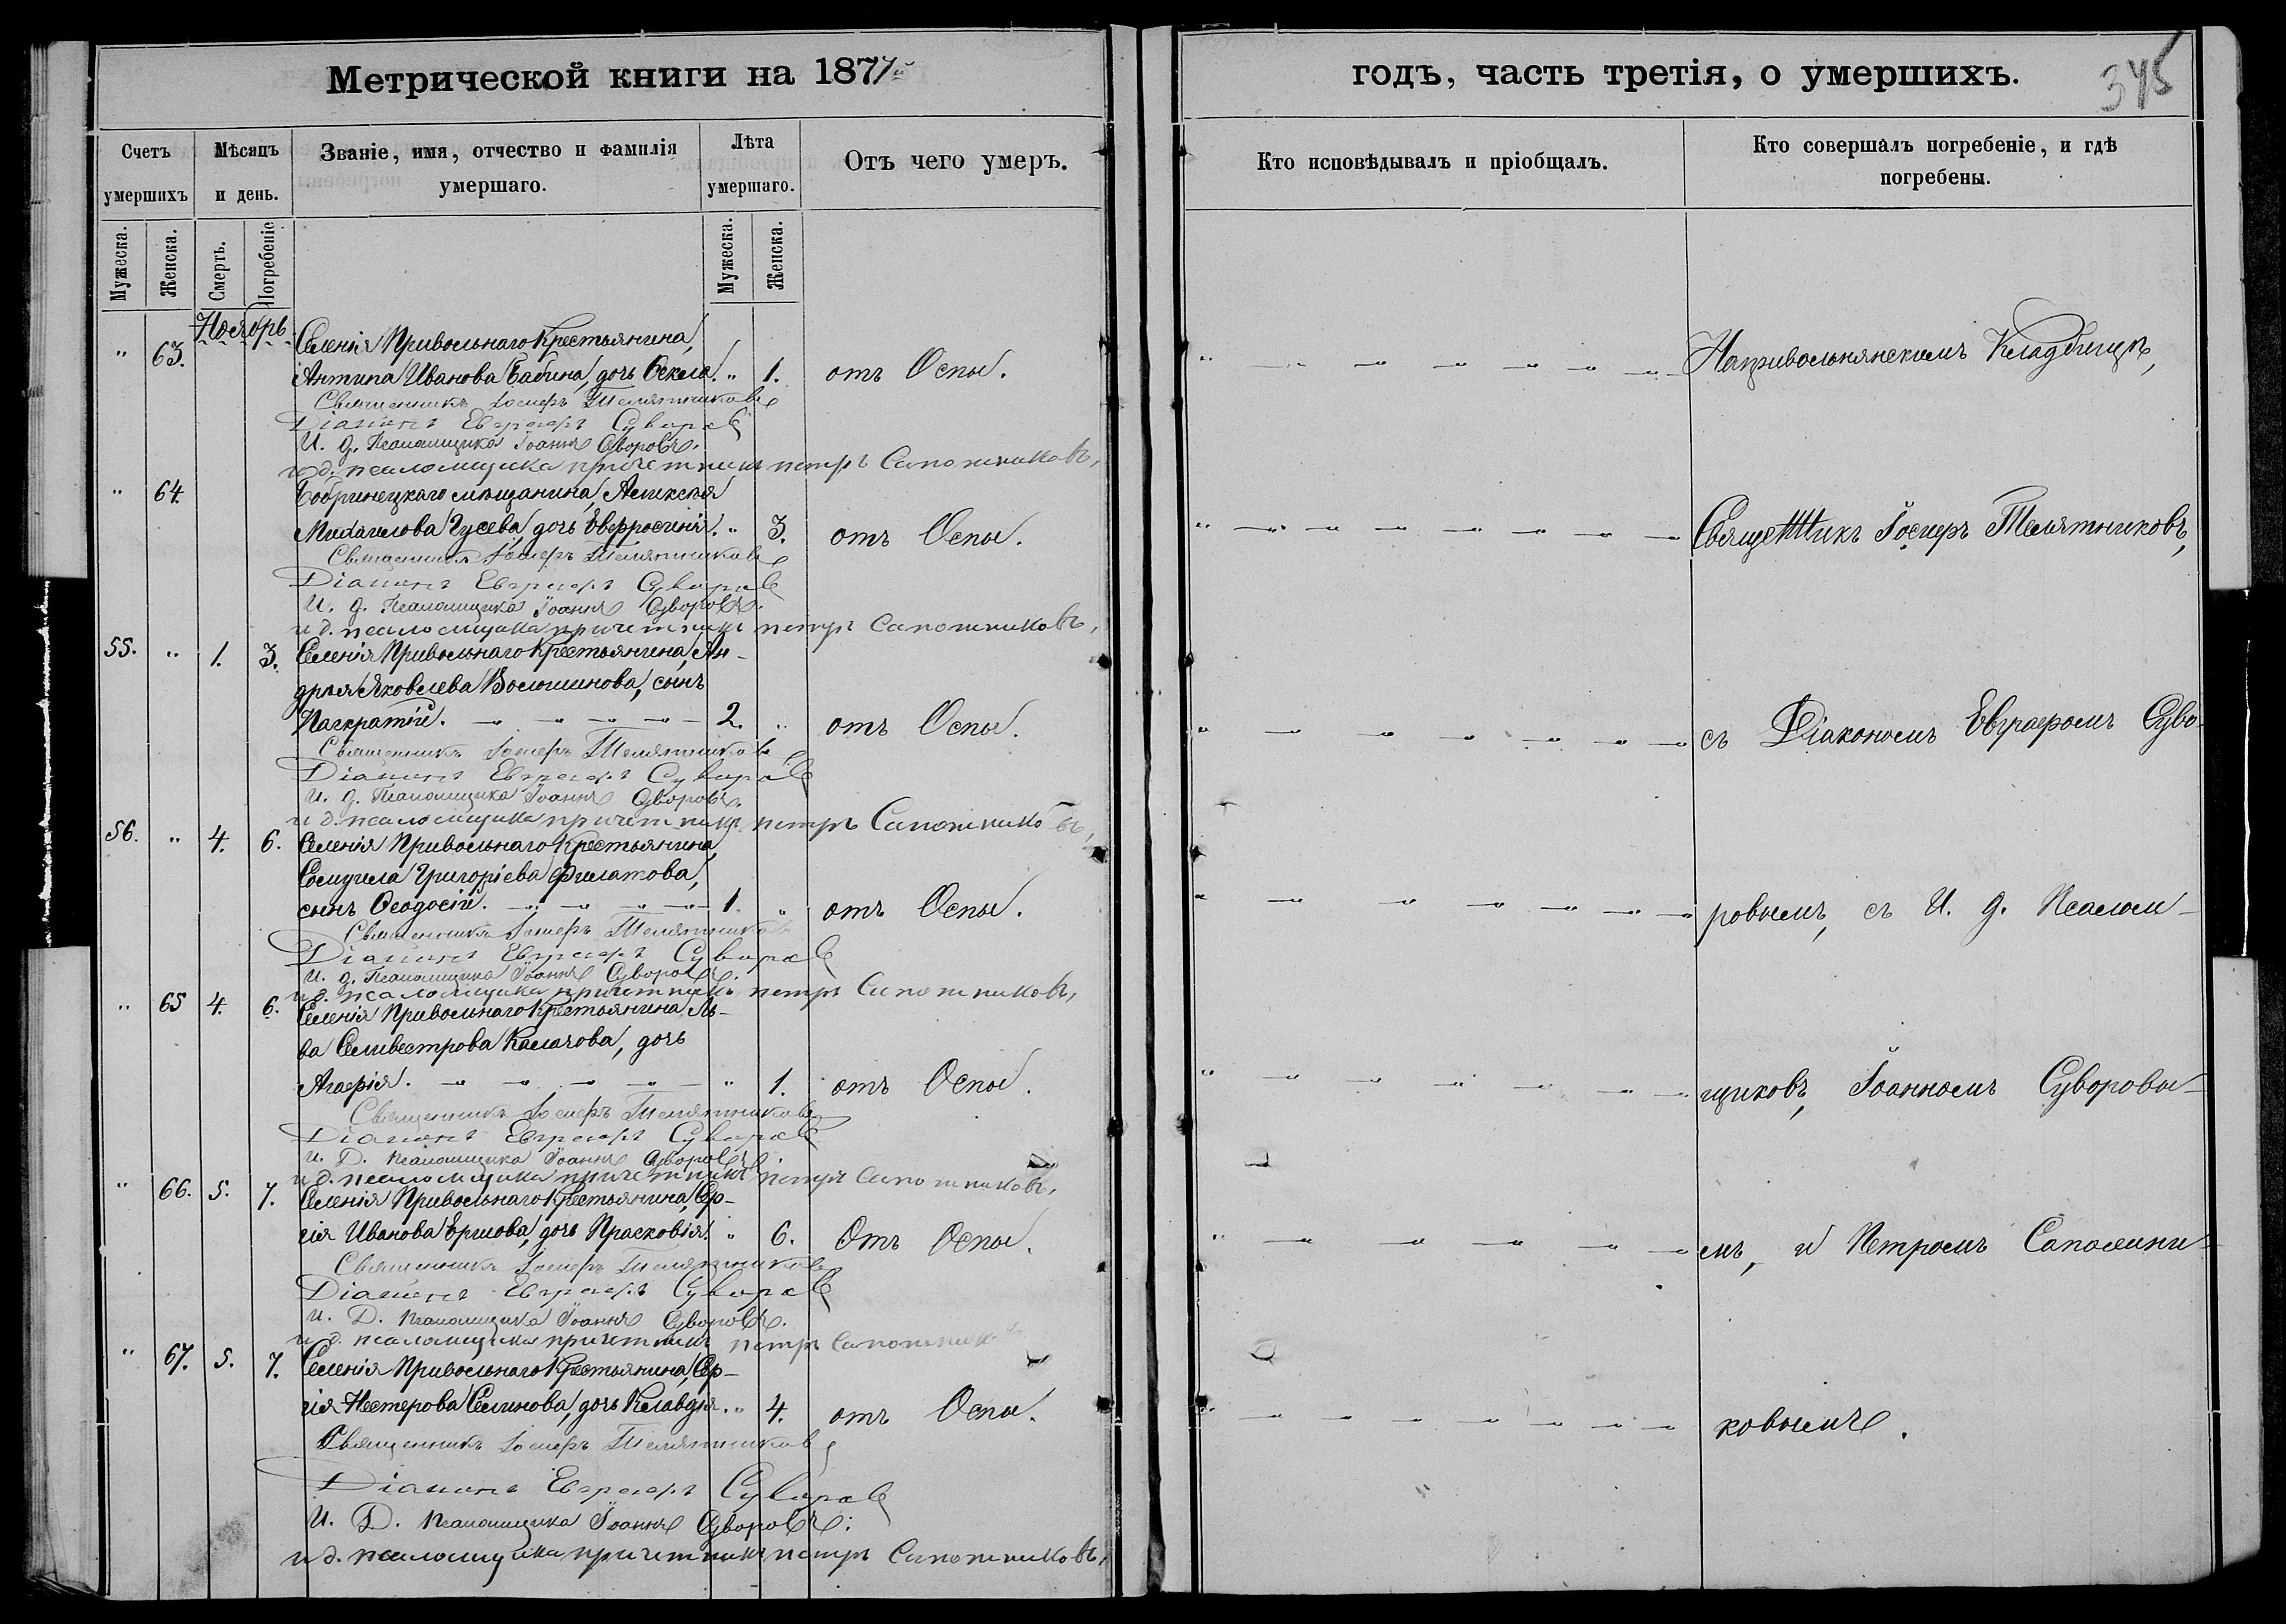 Метрической книги на 1877й
годъ, часть третія, о умершихъ.
345
Счетъ умершихъ
Мѣсяцъ и день.
Званіе, имя, отчество и фамилія умершаго.
Лѣта умершаго.
Отъ чего умеръ.
Кто исповѣдывалъ и пріобщалъ.
Кто совершалъ погребеніе, и гдѣ погребены.
Мужеска.
Женска.
Смерть.
Погребеніе
Мужеска.
Женска.
Ноябрь.
Селенія Привольнаго Крестьянина,
" 63. Антипа Иванова Бабина, дочь Ѳекла. " 1. отъ Оспы. Напривольнянскомъ Кладбищѣ,
Священникъ Іосифъ Телятниковъ
Діаконъ Евграфъ Суворовъ
И. д. Псаломщика Іоаннъ Суворовъ.
и д. псаломщика причетникъ петръ Сапожниковъ,
" 64. Бобринецкаго мѣщанина, Алексѣя
Михаилова Гусева, дочь Евфросинія. " 3. отъ Оспы. Священникъ Іосифъ Телятниковъ,
Священникъ Іосифъ Телятниковъ
Діаконъ Евграфъ Суворовъ
И. д. Псаломщика Іоаннъ Суворовъ.
и д. псаломщика причетникъ петръ Сапожниковъ,
55. " 1. 3. Селенія Привольнаго Крестьянина, Ан-
дрея Яковлева Волошинова, сынъ
Панкратій. 2. " отъ Оспы. съ Діакономъ Евграфомъ Суво-
Священникъ Іосифъ Телятниковъ
Діаконъ Евграфъ Суворовъ
И. д. Псаломщика Іоаннъ Суворовъ.
и д. псаломщика причетникъ петръ Сапожниковъ,
56. " 4. 6. Селенія Привольнаго Крестьянина,
Самуила Григоріева Филатова,
сынъ Ѳеодосій. 1. " отъ Оспы. ровымъ, съ И. д. Псалом-
Священникъ Іосифъ Телятниковъ
Діаконъ Евграфъ Суворовъ
И. д. Псаломщика Іоаннъ Суворовъ.
и д. псаломщика причетникъ петръ Сапожниковъ,
" 65 4. 6. Селенія Привольнаго Крестьянина, Ль-
ва Селивестрова Калачова, дочь
Агафія. " 1. отъ Оспы. щиковъ, Іоанномъ Суворовы-
Священникъ Іосифъ Телятниковъ
Діаконъ Евграфъ Суворовъ
И. Д. Псаломщика Іоаннъ Суворовъ.
и д. псаломщика причетникъ петръ Сапожниковъ,
" 66. 5. 7. Селенія Привольнаго Крестьянина, Сер-
гія Иванова Ершова, дочь Прасковія. " 6. Отъ Оспы. мъ, и Петромъ Сапожни-
Священникъ Іосифъ Телятниковъ
Діаконъ Евграфъ Суворовъ
И. Д. Псаломщика Іоаннъ Суворовъ.
и д. псаломщика причетникъ петръ Сапожник
" 67. 5. 7. Селенія Привольнаго Крестьянина, Сер-
гія Нестерова Селинова, дочь Клавдія. " 4. отъ Оспы. ковымъ.
Священникъ Іосифъ Телятниковъ
Діаконъ Евграфъ Суворовъ
И. Д. Псаломщика Іоаннъ Суворовъ.
и д. псаломщика причетникъ петръ Сапожниковъ,